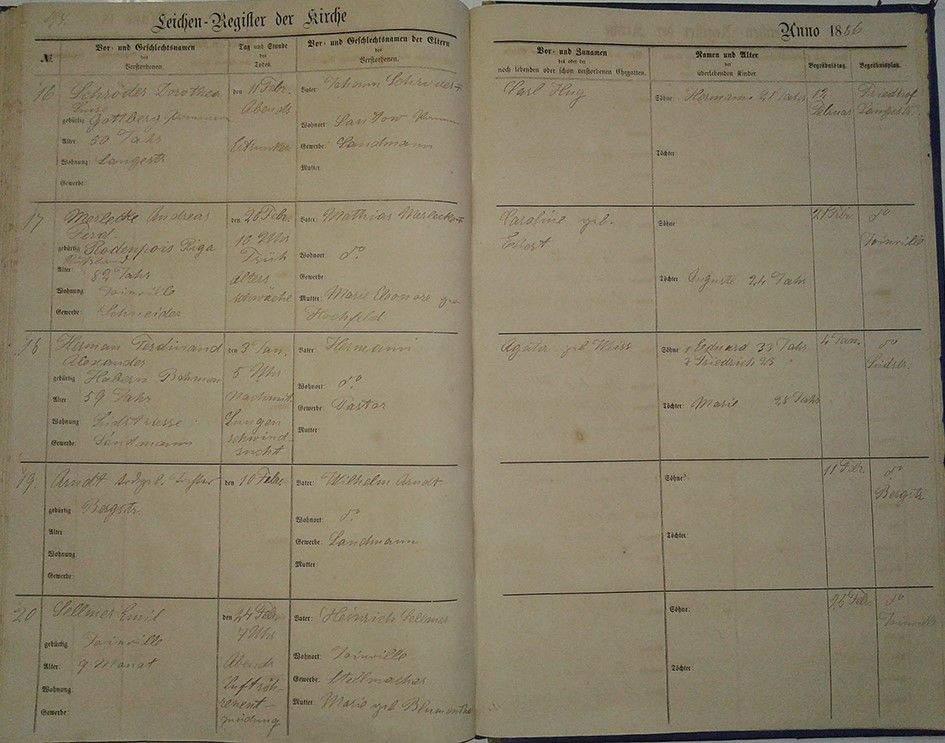 Leichen-Register der Kirche
Anno 1886
№
Vor- und Geschlechtsnamen
des
Verstorbenen.
Tag und Stunde
des
Todes.
Vor- und Geschlechtsnamen der Eltern
des
Verstorbenen.
Vor- und Zunamen
des oder der
noch lebenden oder schon verstorbenen Ehegatten.
Namen und Alter
der
überlebenden Kinder.
Begräbnistag.
Begräbnisplatz.
16
Schröder Dorothea
gebürtig Gottberg Pommern
Alter 50 Jahr
Wohnung: Langestr
Gewerbe:
den 11 Febr.
Abends
Ertrunken
Vater: Johann Schröder
Wohnort:
Gewerbe: Landmann
Mutter:
Carl Hug
Söhne: Hermann 21 Jahr
Töchter:
12
Februar
Friedhof
Langestr.
17
Merleke Andreas
Ferd.
gebürtig Rodenpois Riga
Russland
Alter: 82 Jahr
Wohnung: Joinville
Gewerbe: Schneider
den 20 Febr.
10 Uhr
Früh
Alters
schwäche
Vater: Mathias Merleke
Wohnort: do
Gewerbe:
Mutter: Marie Eleonore ge
Hochfeld
Caroline geb.
Söhne
Töchter Auguste 24 Jahr
21 Febr.
do
Joinville
18
Herman Ferdinand
Alexander
gebürtig Böhmen
Alter 59 Jahr
Wohnung Südstrasse
Gewerbe: Landmann
den 3 Jan.
5 Uhr
Nachmit.
Lungen
schwind
sucht
Vater Hermann
Wohnort: do
Gewerbe: Pastor
Mutter:
geb
Söhne 1 Eduard 33 Jahr
2 Friedrich 23
Töchter: Marie 28 Jahr
4 Jan.
do
Südstr.
19.
Arndt todtgeb. Tochter
gebürtig Bergstr.
Alter
Wohnung
Gewerbe:
den 10 Febr.
Vater: Wilhelm Arndt
Wohnort: do
Gewerbe: Landmann
Mutter:
Söhne:
Töchter:
11 Febr.
do
Bergstr
20
Sellmer Emil
gebürtig Joinville
Alter: 9 Monat
Wohnung:
Gewerbe:
den 24 Febr.
7 Uhr
Abends
Luftröh-
renent-
zündung
Vater: Heinrich Sellmer
Wohnort: Joinville
Gewerbe: Stellmacher
Mutter: Marie geb Blumenthal
Söhne:
Töchter:
26 Febr.
do
Joinville